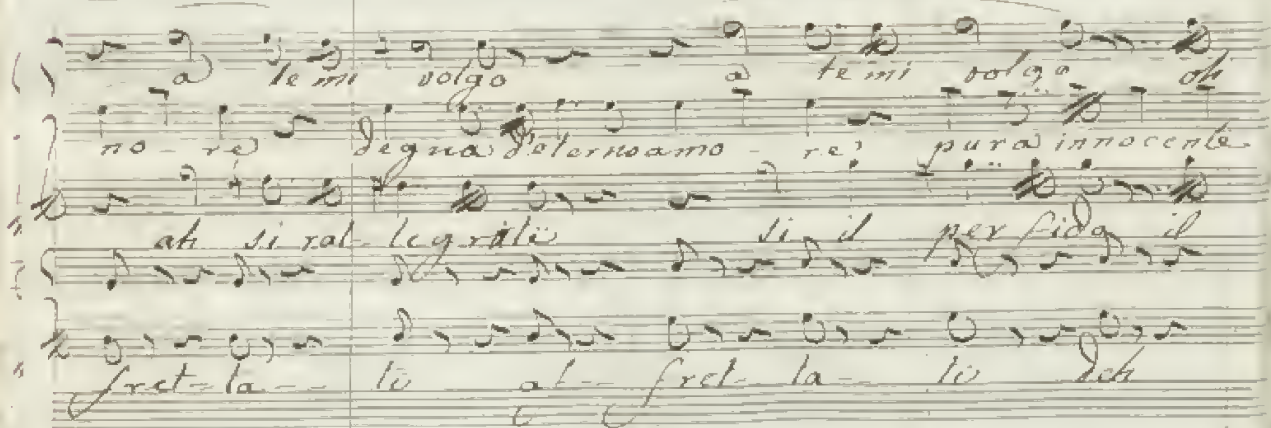 a te mi volgo a te mi volgo oh
no - re degna d'eterno amo - re pura innocente
ah si ral - legrati si il perfido il
fret - ta - - ti af - - fret - ta - ti deh